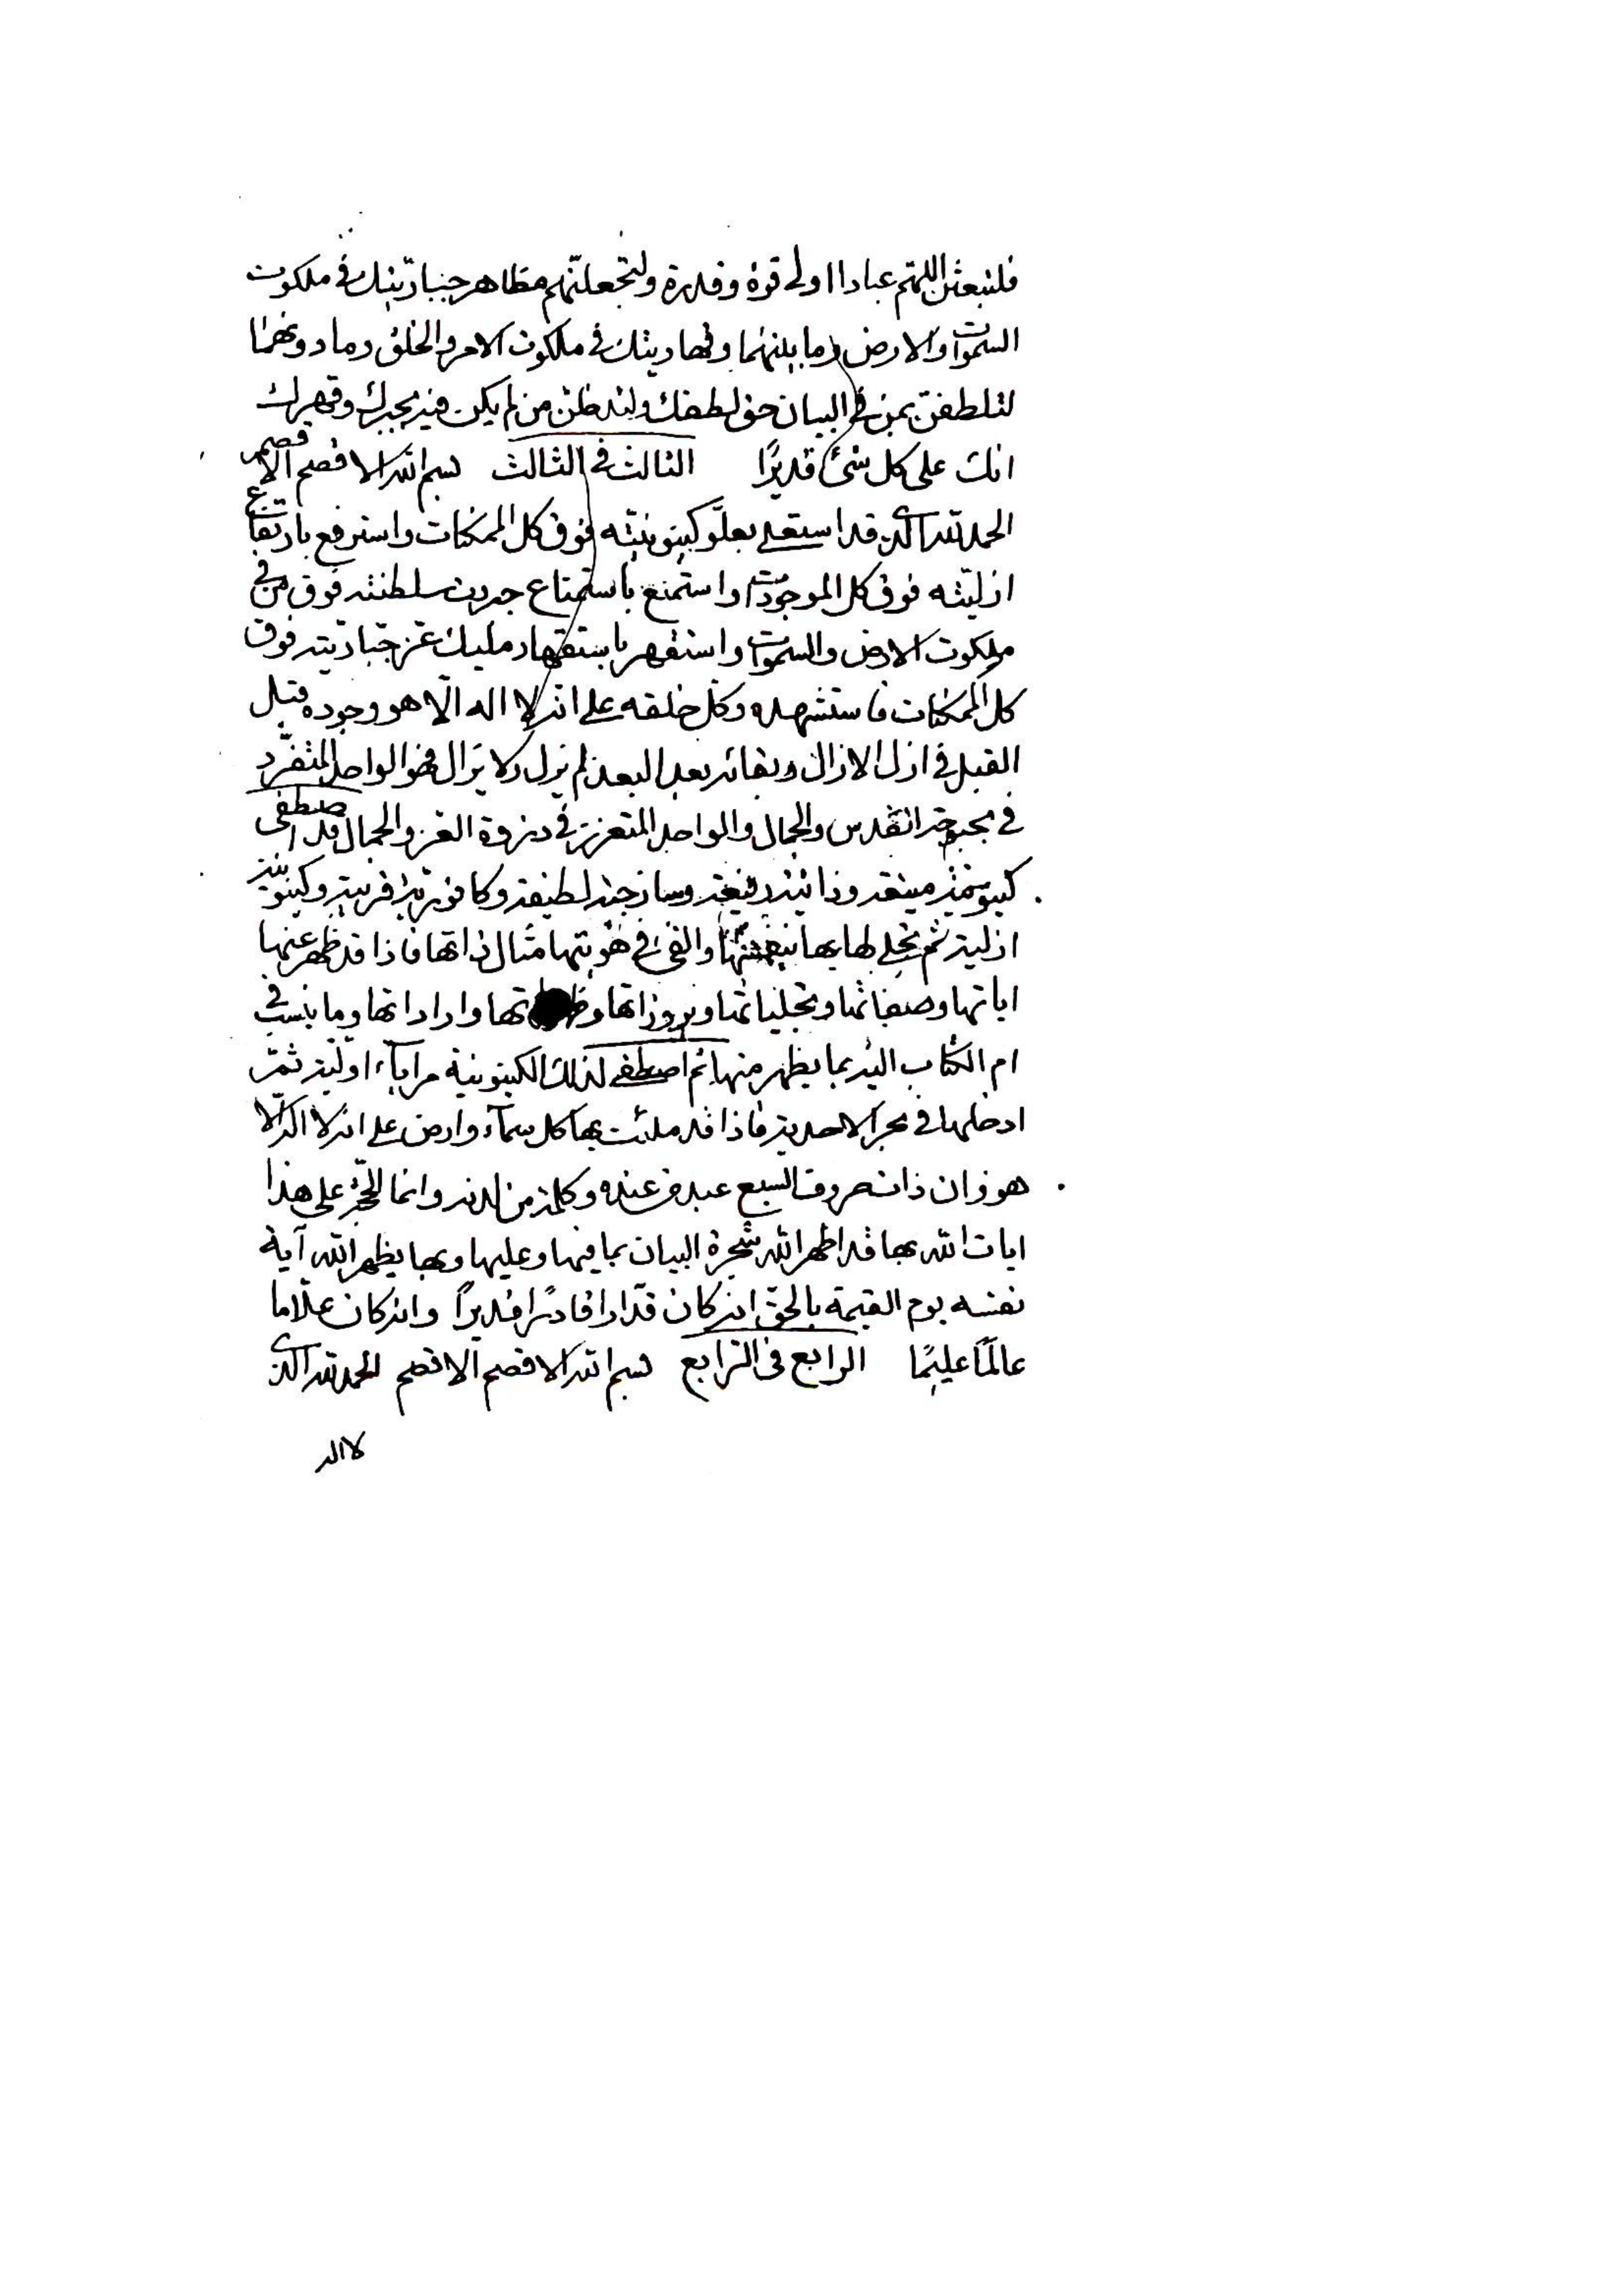 فلتبعثن اللهم عبادا اولی قوة وقدرة ولتجعلنهم مظاهر جباريتك فی ملكوت
السموات والارض وما بينهما وقهاريتك فی ملكوت الامر والخلق وما دونهما
لتلطفن بمن فی البيان حق لطفك من لم يكن فيه بجبرك وقهرك
انك علی كل شئ قديرًا الثالث فی الثالث بسم الله الافصم الافصم
الحمد لله الذی قد استعلی بعلوّ كينونيته فوق كل الممكنات واسترفع بارتفاع
ازليته فوق كل الموجودات واستمنع باستمناع سلطنته فوق من فی
ملكوت الارض والسموات واستقهر باستقهار مليك عز جباريته فوق
كل الممكنات فاستشهده وكل خلقه علی انه لا اله الا هو وجوده قبل
القبل فی ازل الازال وبقائه بعد البعد لم يزل ولا يزال فهو الواحد المتفرّد
فی بحبوحة القدس والجمال والواحد المتعزز فی ذروة العز والجمال قد اصطفی
وذاتية رفيعة وساذجية لطيفة وكافورية وكينونية
ازلية ثم تجلی لها بها بنفسها والقی فی هويتها مثال ذاتها فاذا قد ظهر عنها
اياتها وصفاتها وتجلياتها وبروزاتها وارداداتها وما ينسب فی
ام الكتاب اليه بما يظهر منها ثم اصطفی لذلك الكينونية مراياء اولية ثمّ
ادخلها فی بحر الاحدية فاذا قد ملئت بها كل سمآء وارض علی انه لا اله الا
هو وان ذات حروف السبع عبد من عنده وكلمة من لدنه وانما الحجّة علی هذا
ايات الله بها قد اظهر الله شجرة البيان بما فيها وعليها وبها يظهر الله آية
نفسه يوم القيمة بالحق انه كان قدّارا قادرًا قديرًا وانه كان علّاما
عالمًا عليمًا الرابع فی الرابع بسم الله الافصم الافصم الحمد لله الذی
لا اله